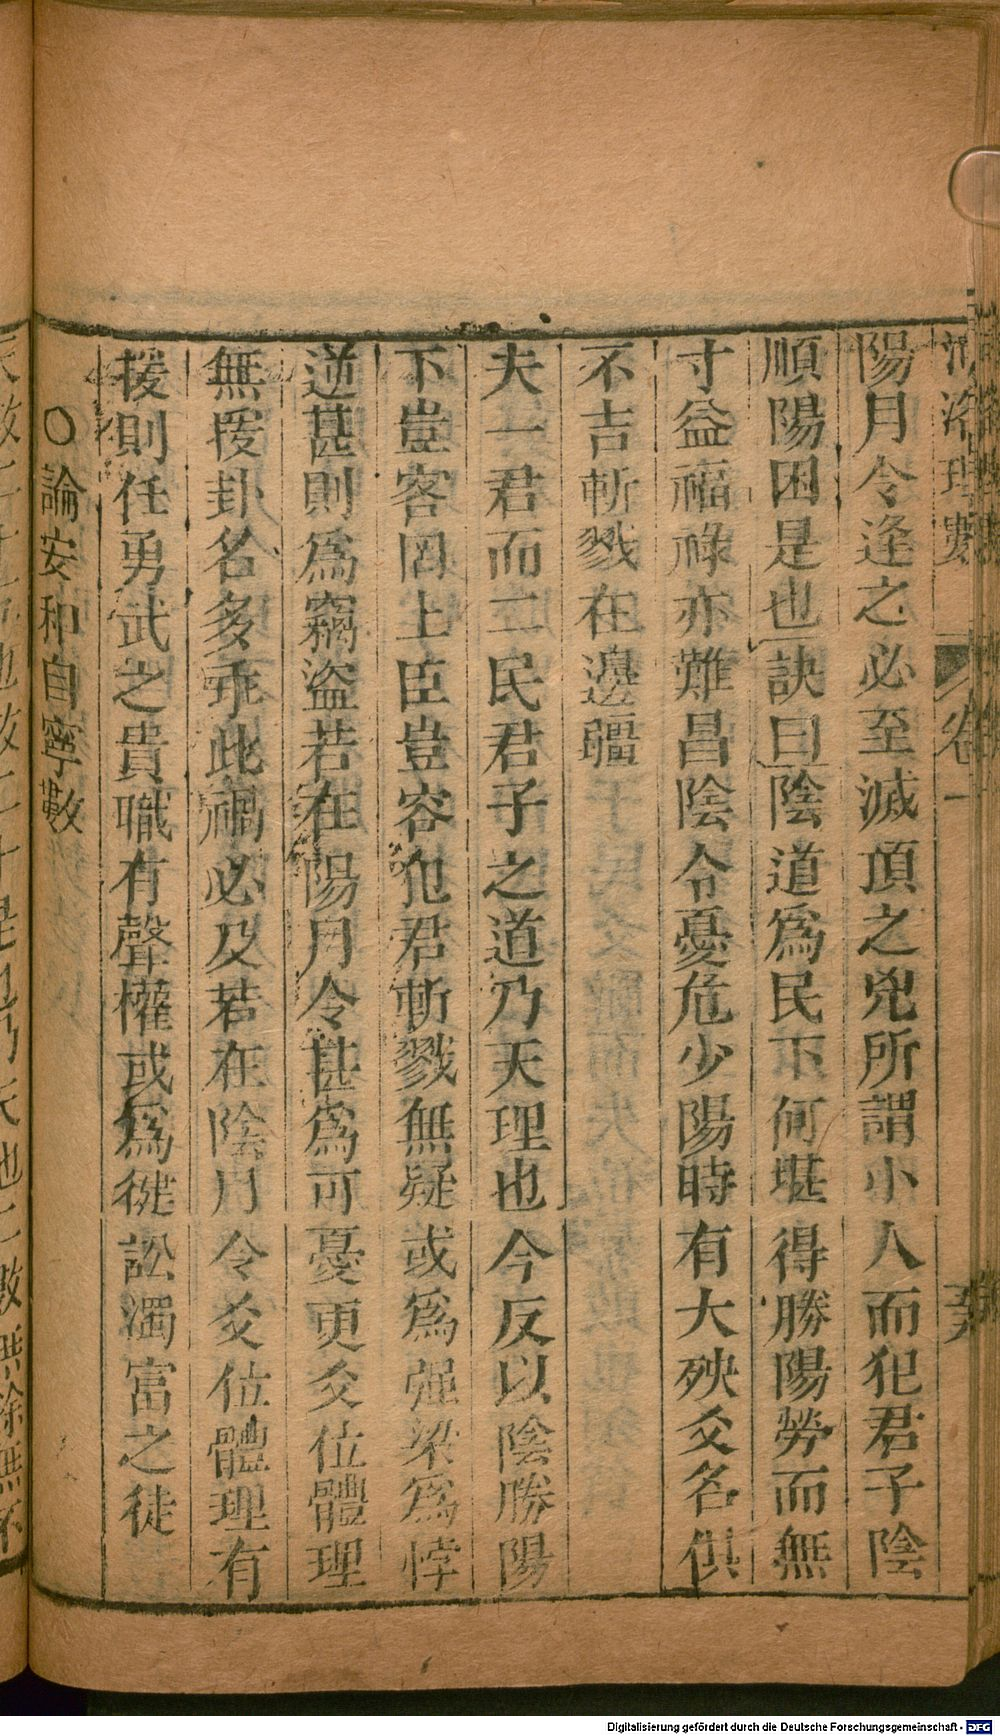 河洛理數 卷一
陽月令逢之必至滅頂之兇所謂小人而犯君子陰
順陽困是也訣曰陰道爲民下何堪得勝陽勞而無
寸益福祿亦難昌陰令憂危少陽時有大殃爻名俱
不吉斬戮在邊疆
夫一君而二民君子之道乃天理也今反以陰勝陽
下豈客固上臣豈容犯君斬戮無疑或爲强梁爲悖
逆甚則爲竊盜若在陽月令甚爲可憂更爻位體理
無援卦名多乖此禍必及若在陰月令爻位體理有
援則任勇武之貴職有聲權或爲健訟濁富之徒
○論安和自寧數
Digitalisierung gefördert durch die Deutsche Forschungsgemeinschaft - DFG